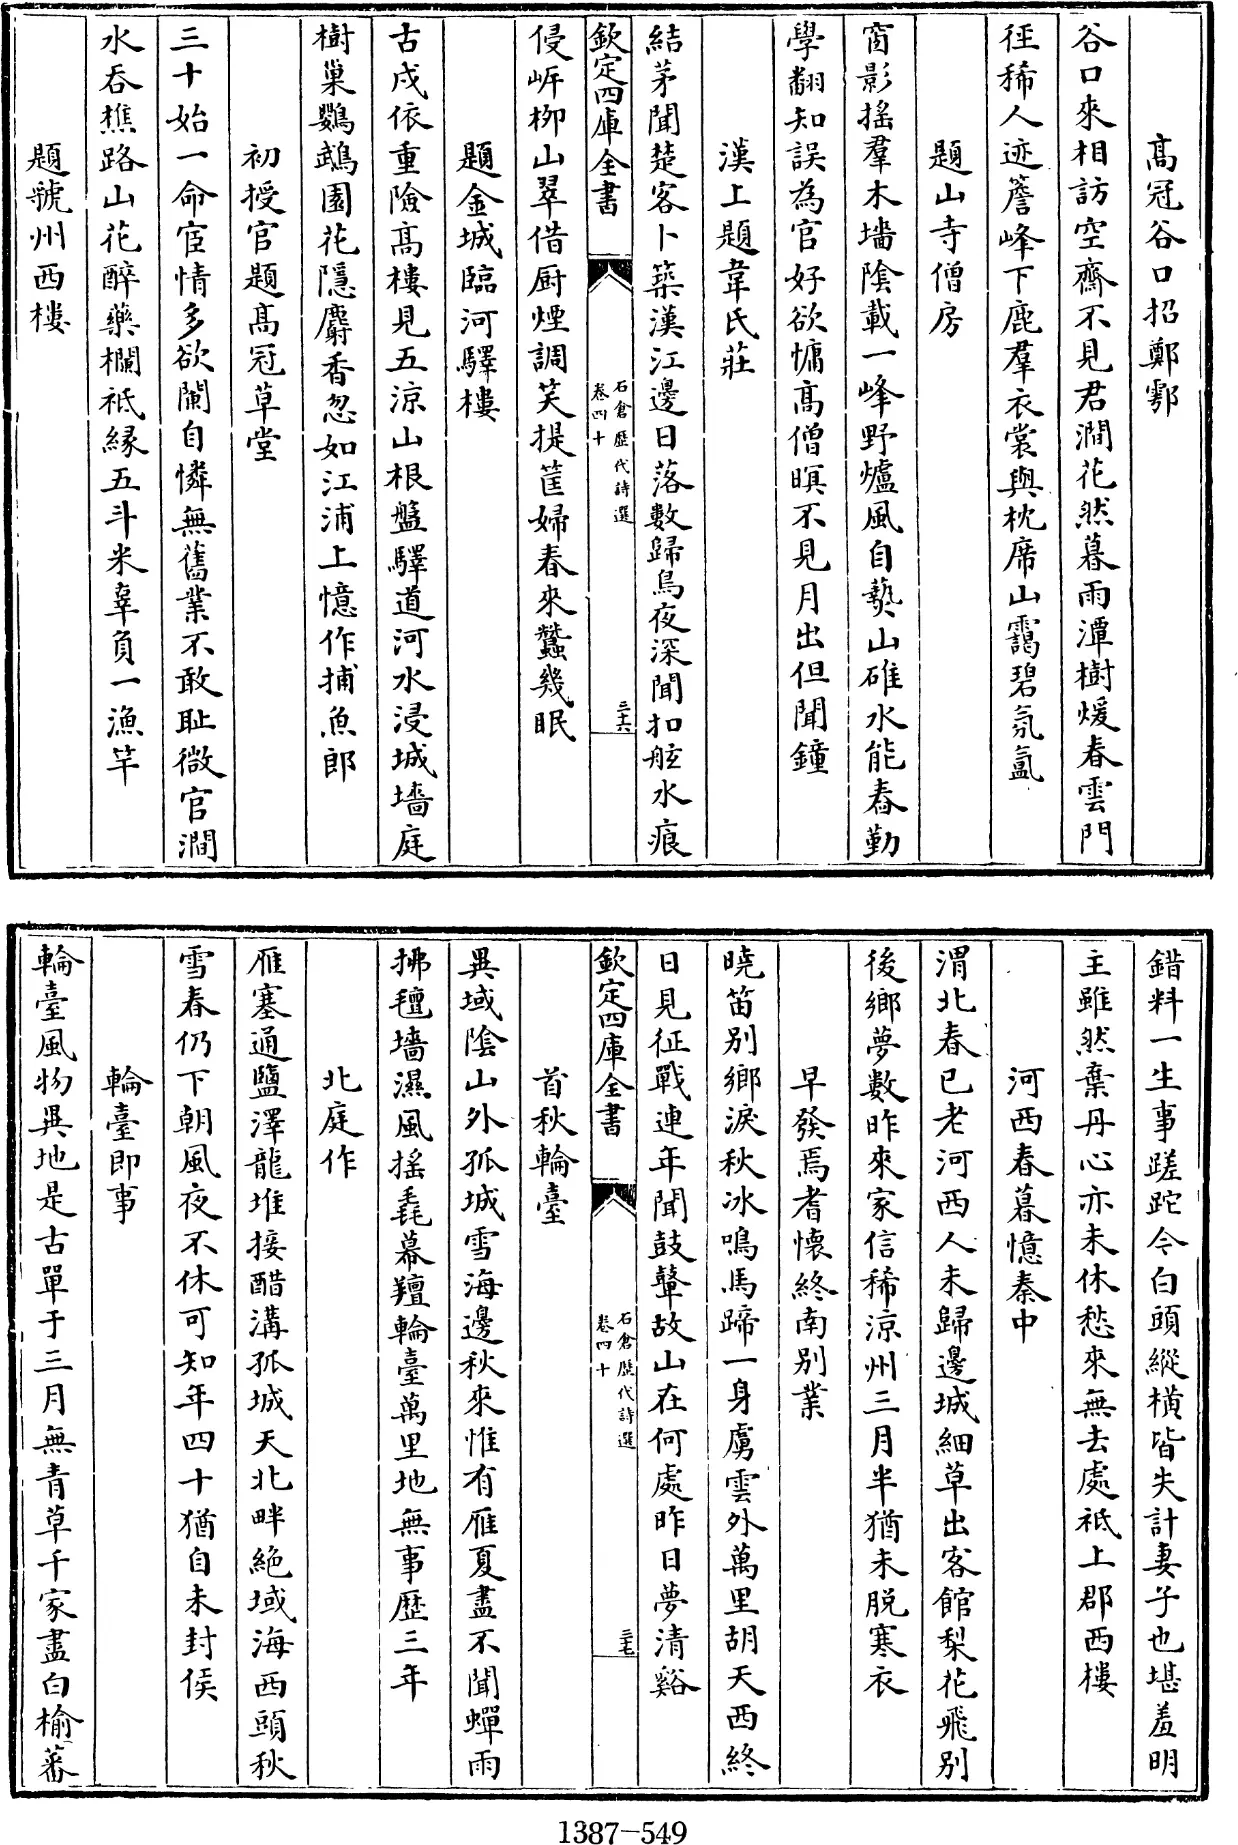 髙冠谷口招鄭鄠
谷口來相訪空齋不見君澗花然暮雨潭樹煖春雲門
徑稀人迹簷峰下鹿羣衣裳與枕席山靄碧氛氲
題山寺僧房
窗影搖羣木墻陰載一峰野爐風自爇山碓水能舂勤
學翻知誤為官好欲慵髙僧暝不見月出但聞鐘
漢上題韋氏莊
結茅聞楚客卜築漢江邊日落數歸鳥夜深聞扣舷水痕
欽定四庫全書
石倉歷代詩選
卷四十
三十六
侵岸柳山翠借厨煙調笑提筐婦春來蠶幾眠
題金城臨河驛樓
古戍依重險髙樓見五涼山根盤驛道河水浸城墻庭
樹巢鸚鵡園花隠麝香忽如江浦上憶作捕魚郎
初授官題髙冠草堂
三十始一命宦情多欲闌自憐無舊業不敢耻微官澗
水吞樵路山花醉藥欄秪緣五斗米辜負一漁竿
題虢州西樓
錯料一生事蹉跎今白頭縱橫皆失計妻子也堪羞明
主雖然棄丹心亦未休愁來無去處秪上郡西樓
河西春暮憶秦中
渭北春已老河西人未歸邊城細草出客館梨花飛别
後鄉夢數昨來家信稀涼州三月半猶未脱寒衣
早發焉耆懐終南别業
曉笛别鄉淚秋冰鳴馬蹄一身虜雲外萬里胡天西終
日見征戰連年聞鼓鼙故山在何處昨日夢清谿
欽定四庫全書
石倉歷代詩選
卷四十
三十七
首秋輪臺
異域隂山外孤城雪海邊秋來惟有雁夏盡不聞蟬雨
拂氊墻濕風揺毳幕羶輪臺萬里地無事歴三年
北庭作
雁塞通鹽澤龍堆接醋溝孤城天北畔絶域海西頭秋
雪春仍下朝風夜不休可知年四十猶自未封侯
輪臺即事
輪臺風物異地是古單于三月無青草千家盡白榆蕃
1387-549